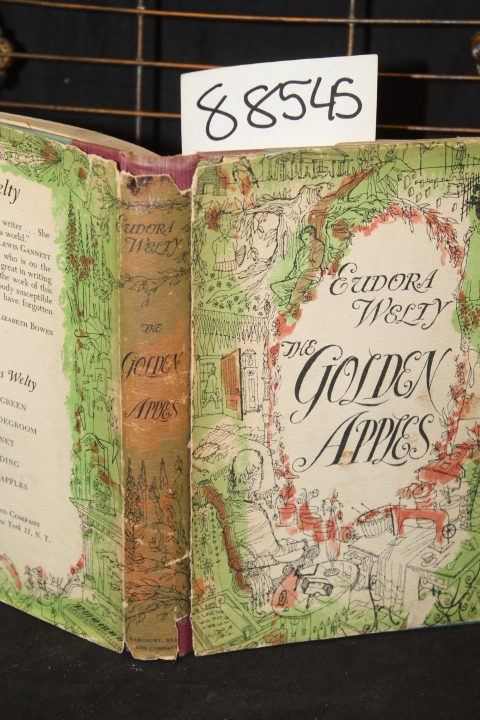 88545
elty
writer . . . She
a world."
LEWIS GANNETT
who is on the
great in writing
the work of this
body susceptible
have forgotten
LIZABETH BOWEN
s Welty
GREEN
DEGROOM
NET
DING
APPLES
ND COMPANY
w York 11, N. Y.
EUDORA
WELTY
THE
GOLDEN
APPLES
HARCOURT, BRA
AND COMPANY
EUDORA
WELTY
THE
GOLDEN
APPLES